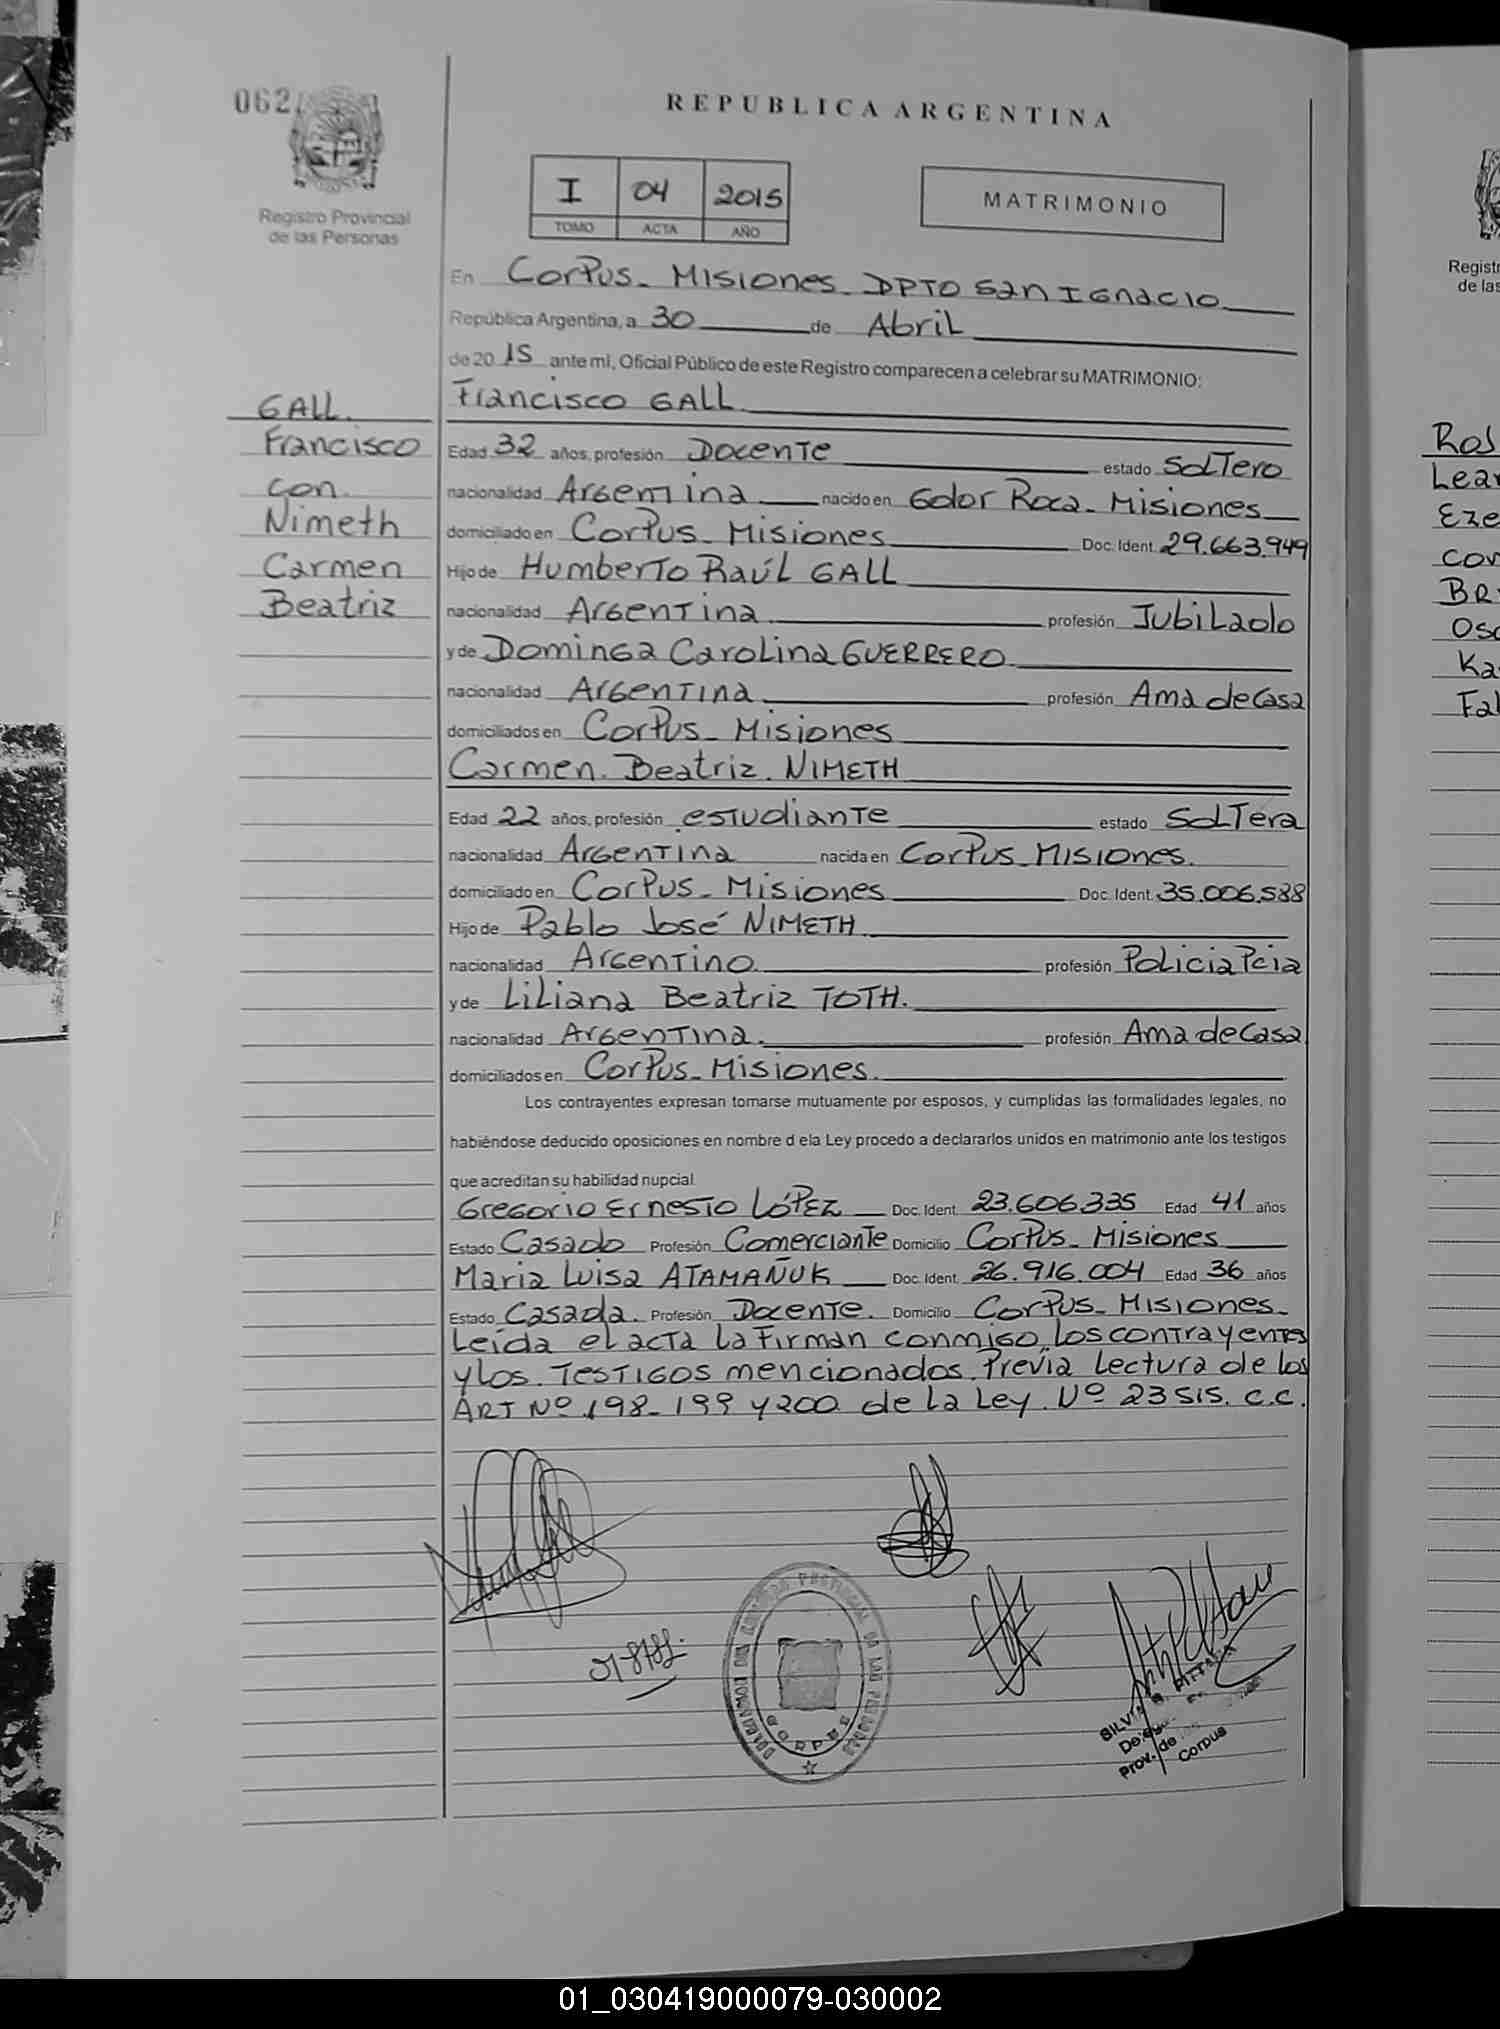 062
REPUBLICA ARGENTINA
Registro Provincial
de las Personas
I 04 2015
TOMO ACTA AÑO
MATRIMONIO
En Corpus - Misiones - DPTO San Ignacio
República Argentina, a 30 de Abril
de 20 15 ante mi, Oficial Público de este Registro comparecen a celebrar su MATRIMONIO:
GALL.
Francisco
con
Nimeth
Carmen
Beatriz
Francisco GALL
Edad 32 años, profesión Docente estado Soltero
nacionalidad Argentina nacido en Gdor Roca - Misiones
domiciliado en Corpus - Misiones Doc. Ident. 29.663.949
Hijo de Humberto Raúl GALL
nacionalidad Argentina profesión Jubilado
y de Dominga Carolina GUERRERO
nacionalidad Argentina profesión Ama de Casa
domiciliados en Corpus - Misiones
Carmen Beatriz NIMETH
Edad 22 años, profesión estudiante estado Soltera
nacionalidad Argentina nacida en Corpus - Misiones.
domiciliado en Corpus - Misiones Doc. Ident. 35.006.538
Hijo de Pablo José NIMETH
nacionalidad Argentino profesión Policia Pcia
y de Liliana Beatriz TOTH.
nacionalidad Argentina. profesión Ama de Casa
domiciliados en Corpus - Misiones.
Los contrayentes expresan tomarse mutuamente por esposos, y cumplidas las formalidades legales, no
habiéndose deducido oposiciones en nombre d ela Ley procedo a declararlos unidos en matrimonio ante los testigos
que acreditan su habilidad nupcial
Gregorio Ernesto LÓPEZ Doc. Ident. 23.606.335 Edad 41 años
Estado Casado Profesión Comerciante Domicilio Corpus - Misiones
Maria Luisa ATAMAÑUK Doc. Ident. 26.916.004 Edad 36 años
Estado Casada. Profesión Docente. Domicilio Corpus - Misiones.
Leída el acta la firman conmigo, los contrayentes
y los testigos mencionados. Previa lectura de los
ART Nº 198 - 199 y 200 de la Ley Nº 23515. C.C.
CORPUS
Prov. de
Corpus
Registr
de las
Ros
Lear
Eze
con
Osc
Ka
Fal
01_030419000079-030002